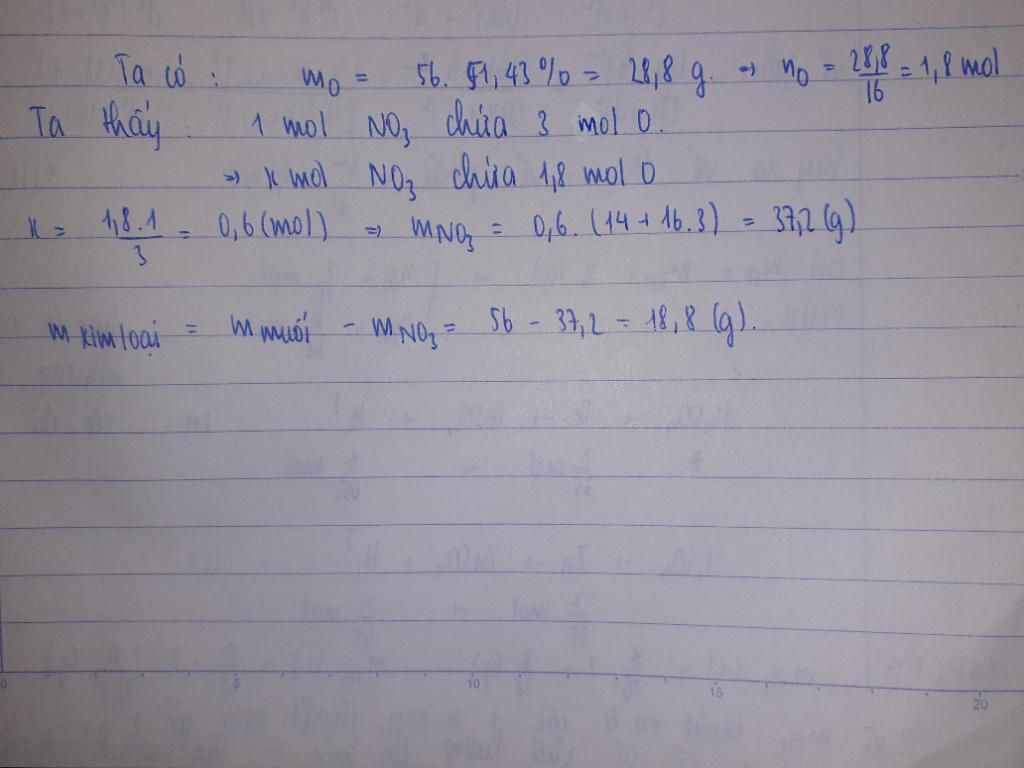 Ta có : mO = 56. 51,43% = 28,8 g. → nO = 28,8/16 = 1,8 mol
Ta thấy : 1 mol NO3 chứa 3 mol O.
→ x mol NO3 chứa 1,8 mol O
x = 1,8.1/3 = 0,6 (mol) ⇒ mNO3 = 0,6. (14+16.3) = 37,2 (g)
m kim loại = m muối - mNO3 = 56 - 37,2 = 18,8 (g).
0 5 10 15 20